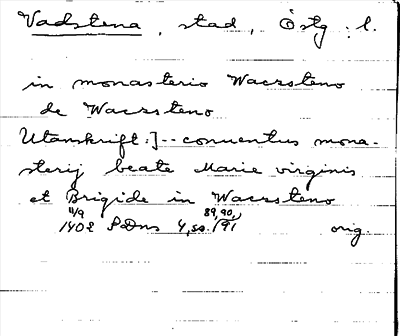 Vadstena, stad, Östg. l.
in monasterio Waczsteno
de Waczsteno
Utanskrift:]-- conuentus mona-
sterij beate Marie virginis
et Brigide in Waczsteno
11/9 89, 90,
1402 SDns 4, ss. /91 orig.